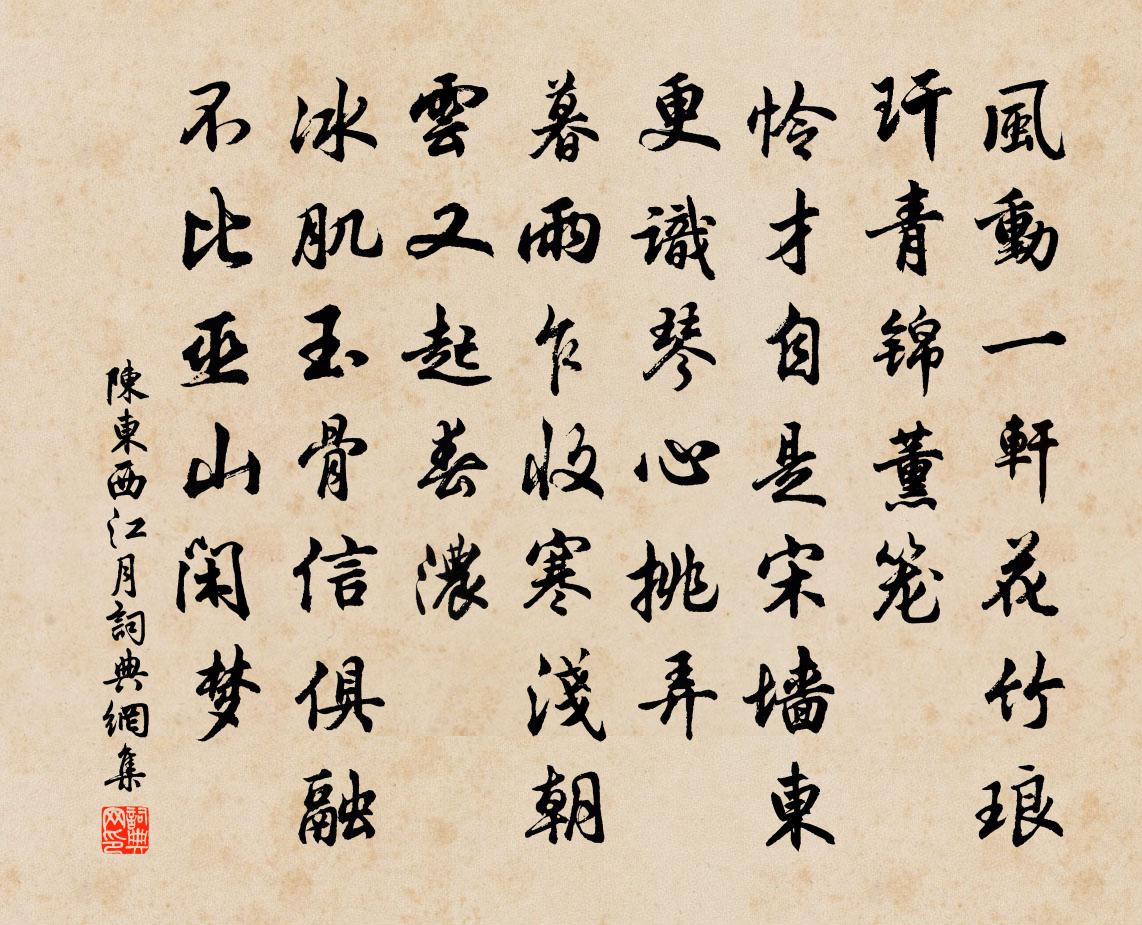 風動一軒花竹琅
玕青锦薰笼
怜才自是宋墙東
更識琴心挑弄
暮雨乍收寒淺朝
雲又起春濃
冰肌玉骨信俱融
不比巫山閑梦
陳東西江月詞典網集
詞典网印